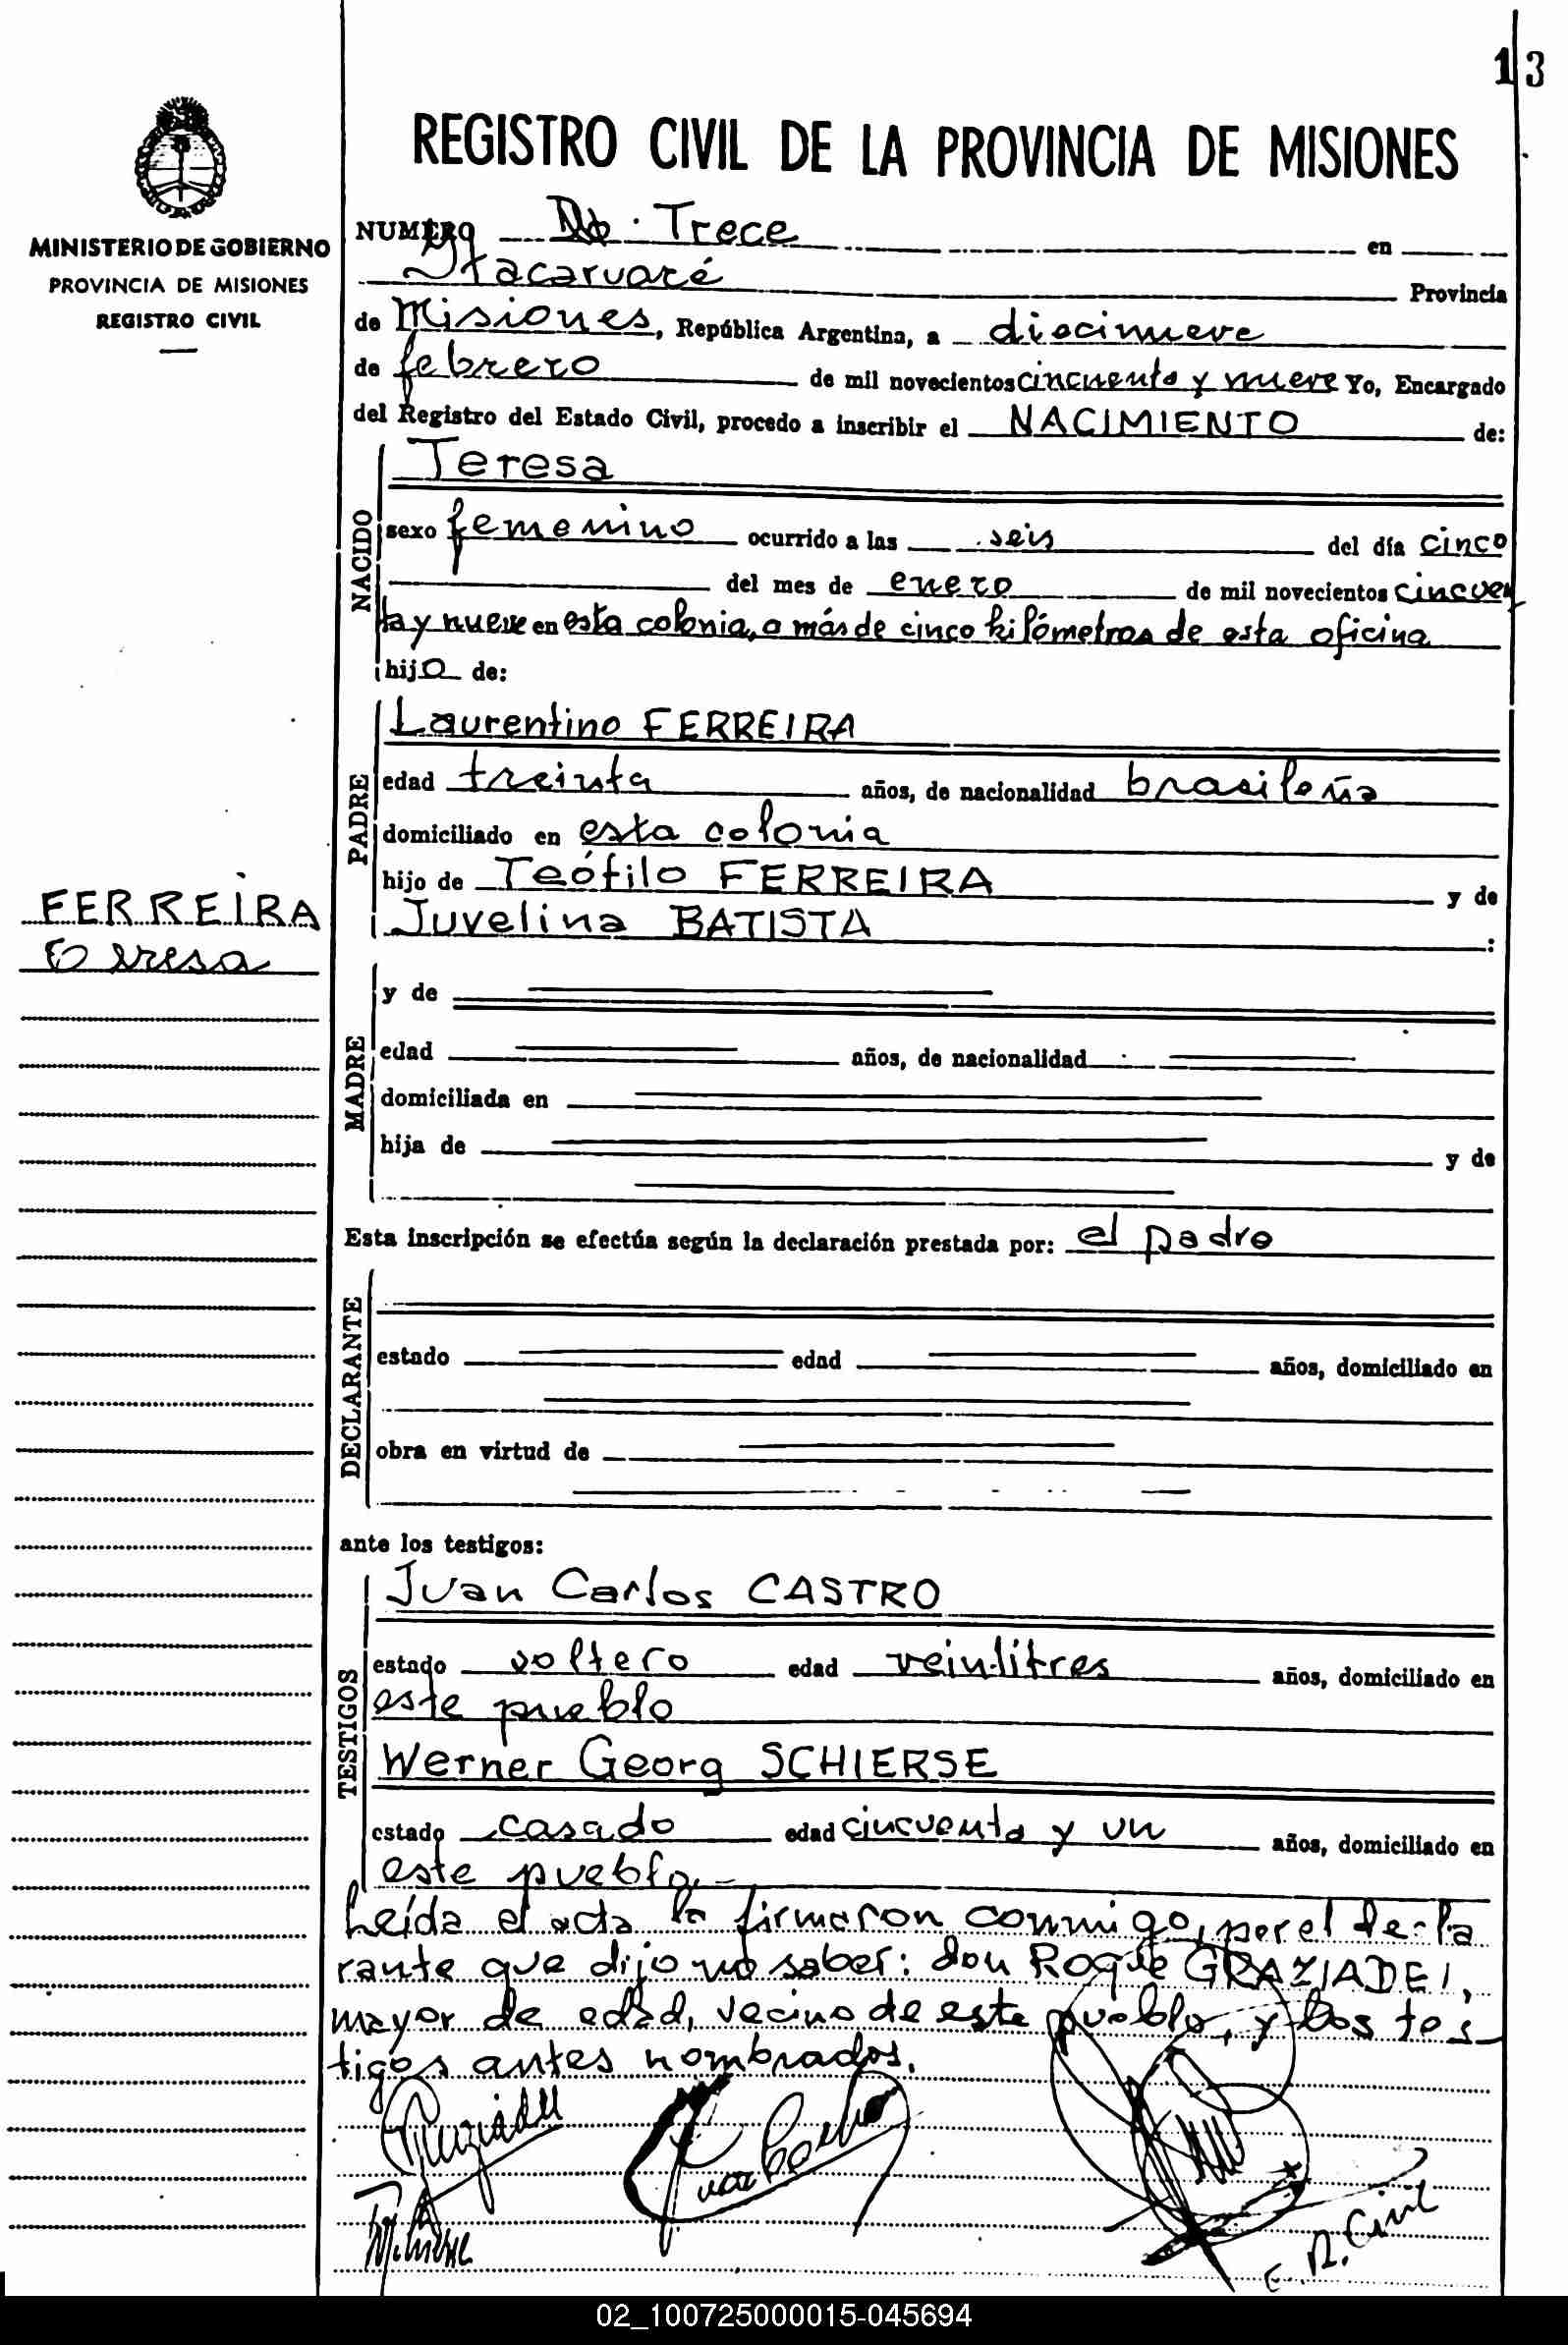 13
REGISTRO CIVIL DE LA PROVINCIA DE MISIONES
MINISTERIO DE GOBIERNO
PROVINCIA DE MISIONES
REGISTRO CIVIL
NUMERO Trece en
Itacaruaré Provincia
de Misiones, República Argentina, a diecinueve
de febrero de mil novecientos cincuenta y nueve Yo, Encargado
del Registro del Estado Civil, procedo a inscribir el NACIMIENTO de:
NACIDO
Teresa
sexo femenino ocurrido a las seis del día cinco
del mes de enero de mil novecientos cincuen
ta y nueve en esta colonia, a más de cinco kilómetros de esta oficina
hija de:
PADRE
Laurentino FERREIRA
edad treinta años, de nacionalidad brasileña
domiciliado en esta colonia
hijo de Teófilo FERREIRA y de
Juvelina BATISTA :
FERREIRA
Teresa
MADRE
y de
edad años, de nacionalidad
domiciliada en
hija de y de
Esta inscripción se efectúa según la declaración prestada por: el padre
DECLARANTE
estado edad años, domiciliado en
obra en virtud de
ante los testigos:
TESTIGOS
Juan Carlos CASTRO
estado soltero edad veintitres años, domiciliado en
este pueblo
Werner Georg SCHIERSE
estado casado edad cincuenta y un años, domiciliado en
este pueblo.-
Leída el acta la firmaron conmigo, por el decla
rante que dijo no saber: don Roque GRAZIADEI,
mayor de edad, vecino de este pueblo, y los tes
tigos antes nombrados.
E. R. Civil
02_100725000015-045694